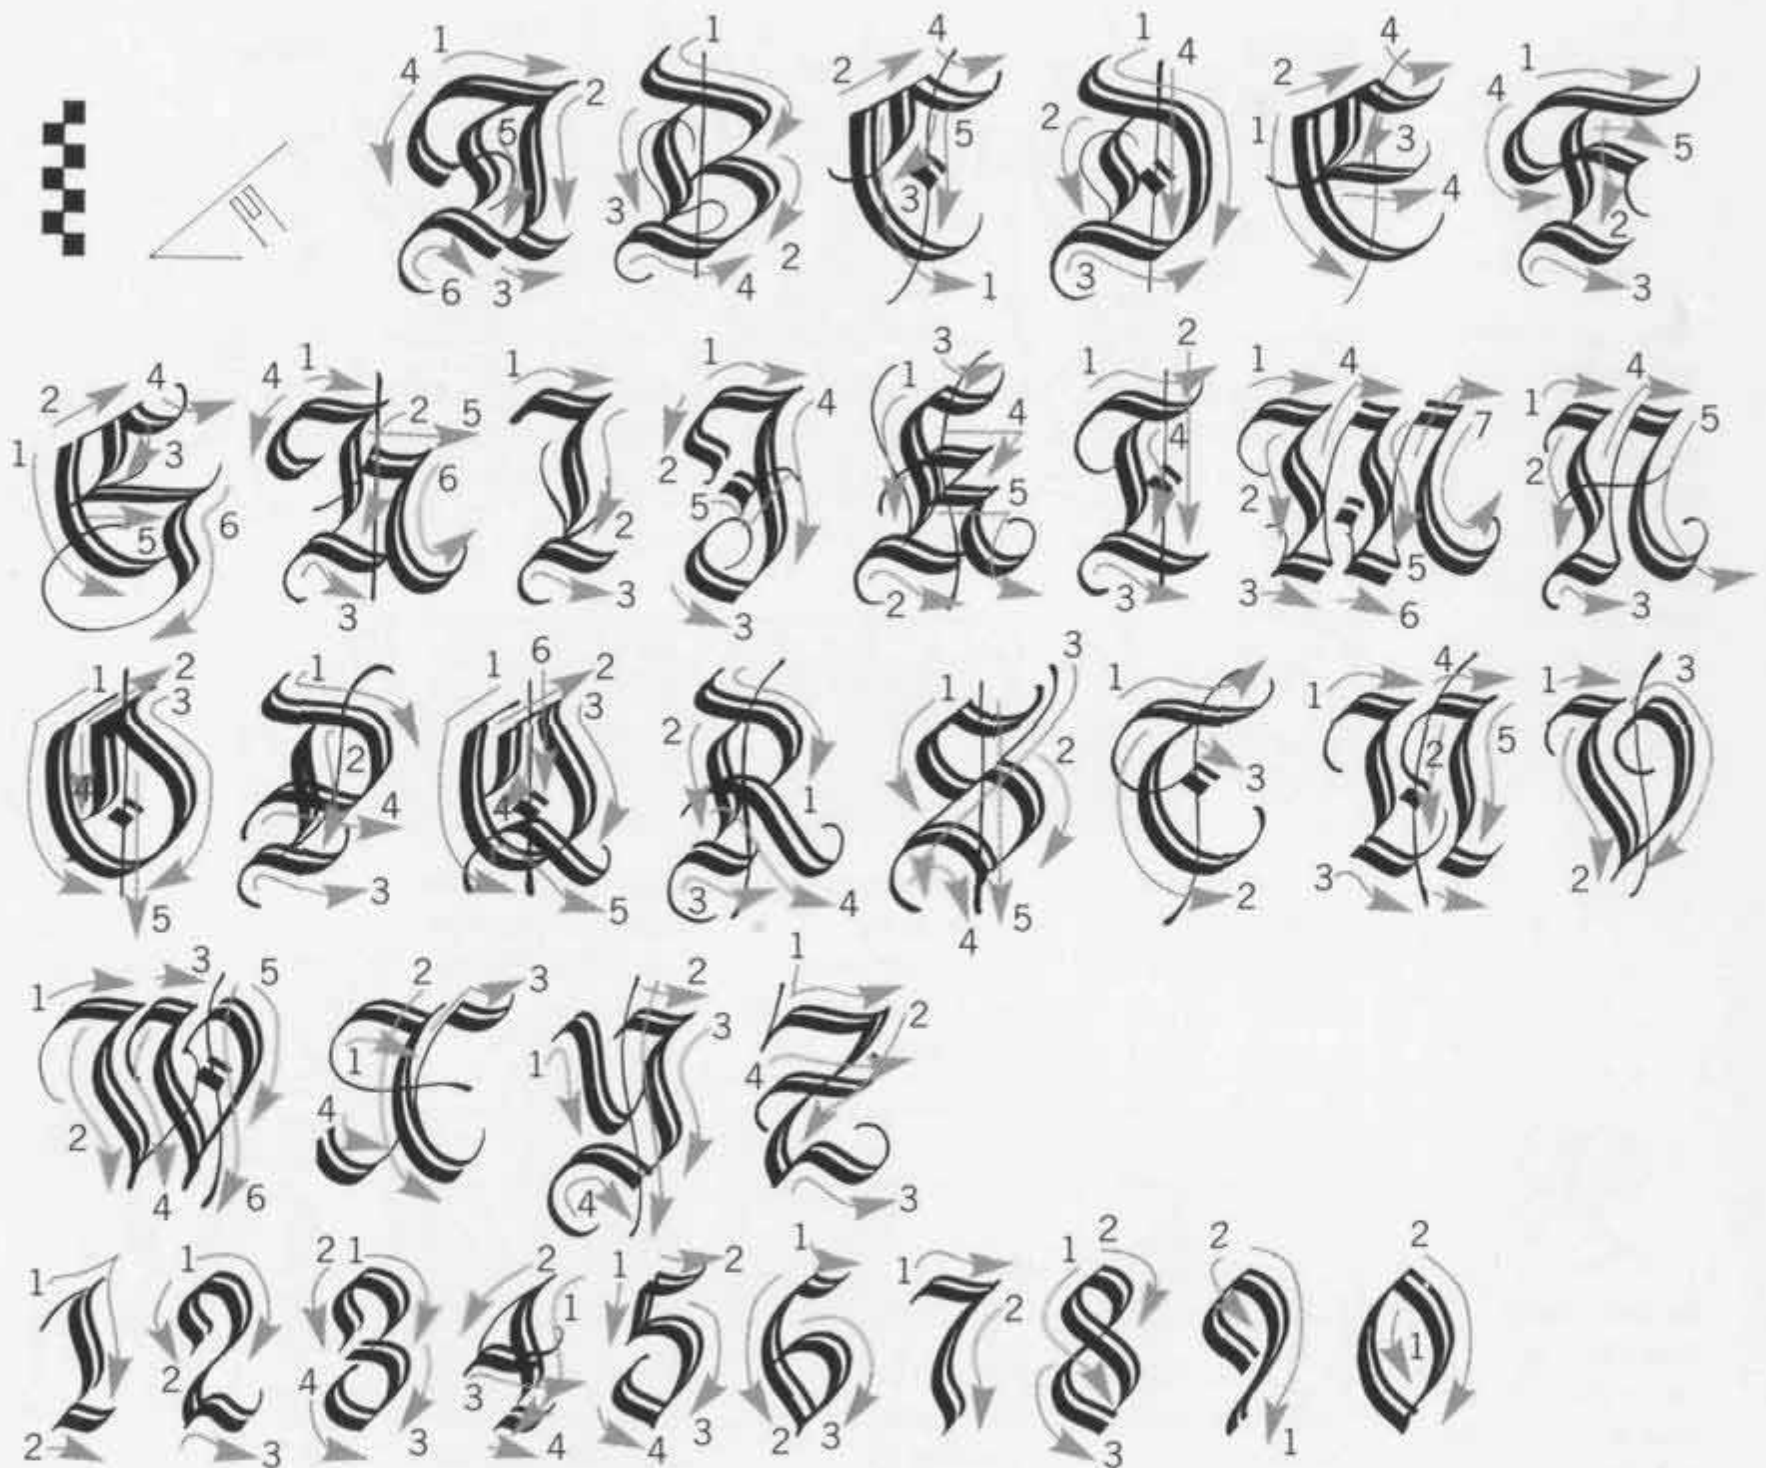 A B C D E F
G H I J K L M N
O P Q R S T U V
W X Y Z
1 2 3 4 5 6 7 8 9 0